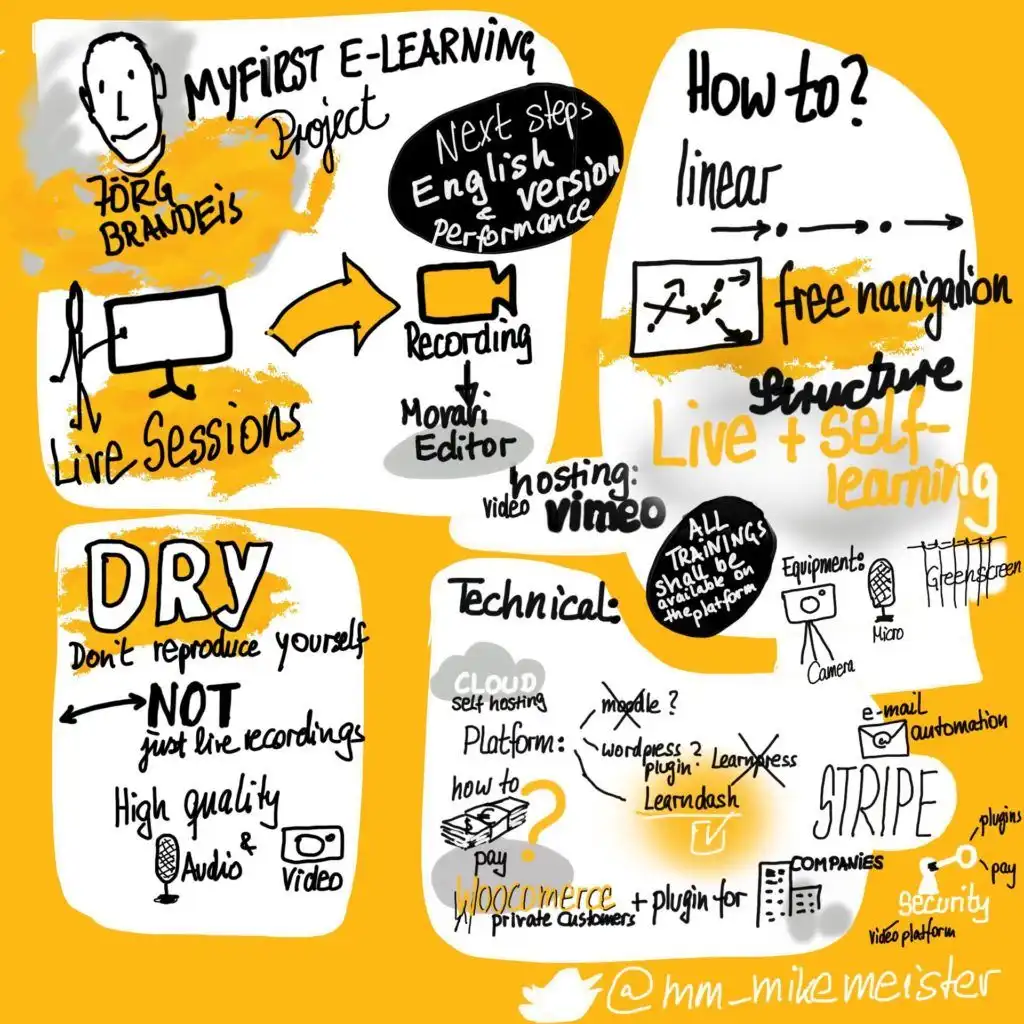 MYFIRST E-LEARNING
Project
JÖRG
BRANDEIS
Next steps
English
version
&
Performance
Live Sessions
Recording
Movavi
Editor
video hosting:
vimeo
How to?
linear
free navigation
structure
Live + self-
learning
ALL
TRAININGS
shall be
available on
the platform
Equipment:
Camera
Micro
Greenscreen
DRY
Don't reproduce yourself
NOT
just live recordings
High quality
Audio
&
Video
Technical:
CLOUD
self hosting
Platform:
moodle ?
wordpress ?
plugin: Learnpress
Learndash
how to
$ €
?
pay
Woocomerce
private customers
+ plugin for
COMPANIES
e-mail
@
automation
STRIPE
plugins
pay
Security
Video platform
@mm_mikemeister